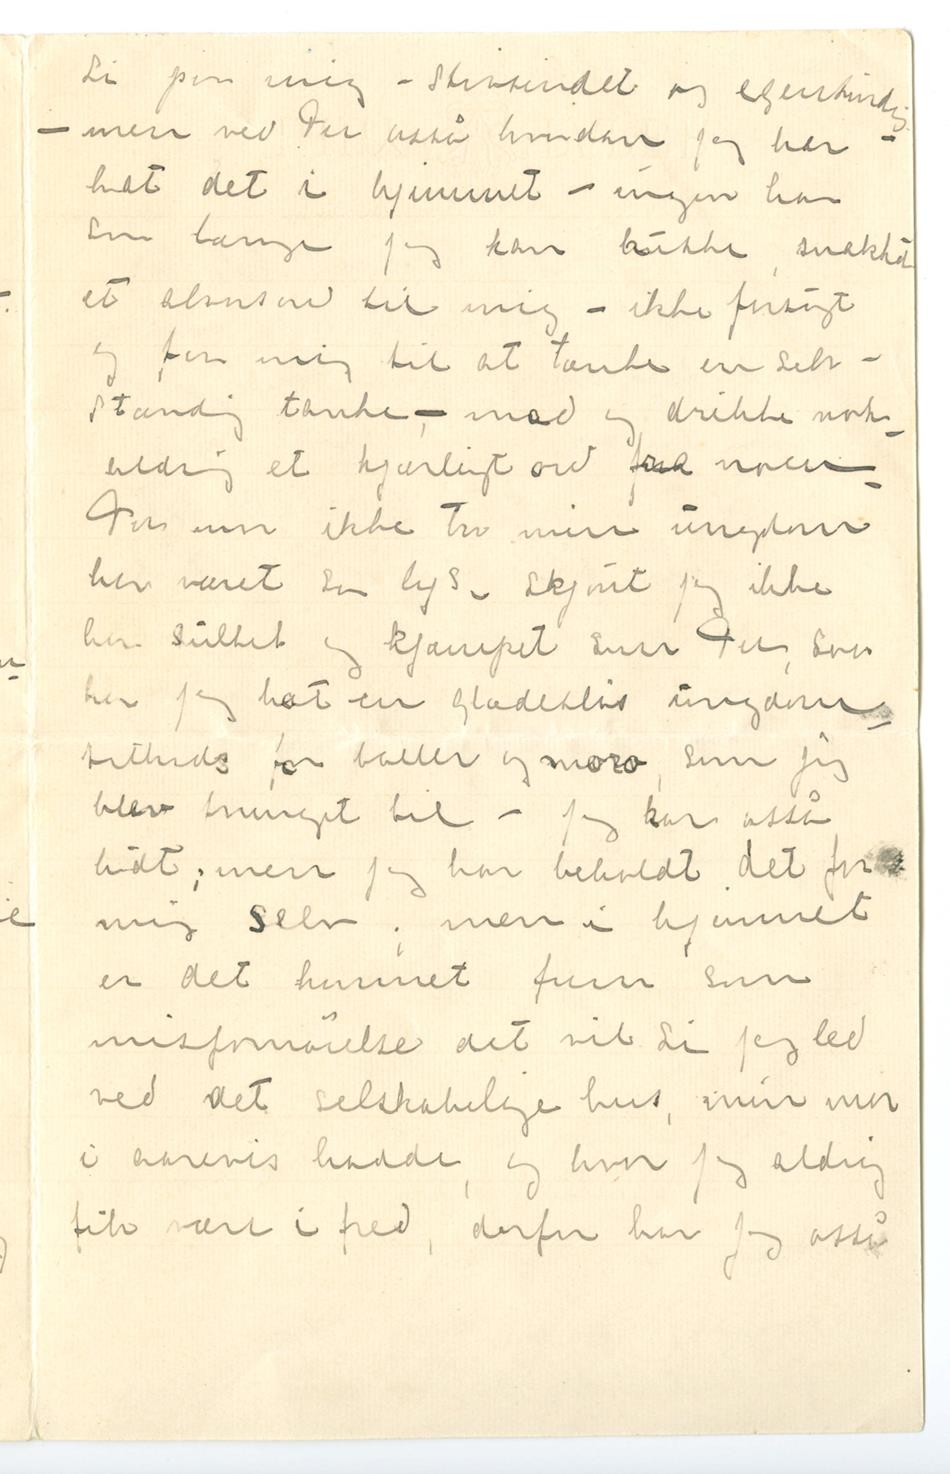 si paa mig – stivsindet og egensindig –
– men ved De også hvordan jeg har
hat det i hjemmet – ingen har
som længe jeg kan huske, snakket
et alvorsord til mig – ikke forsögt
og faa mig til at tænke en selv-
stændig tanke, – mad og drikke nok –
aldrig et kjærligt ord fra noen –
De maa ikke tro min ungdom
har været saa lys – skjönt jeg ikke
har sultet og kjæmpet som De, saa
har jeg hat en gladeslös ungdom –
for baller og moro, som jeg
blev tvunget til – jeg har også
lidt; men jeg har beholdt det for
mig selv; men i hjemmet
er det kommet frem som
misfornöielse det vil si jeg led
ved det selskabelige hus, min mor
i aarevis hadde, og hvor jeg aldrig
fik være i fred, derfor har jeg også